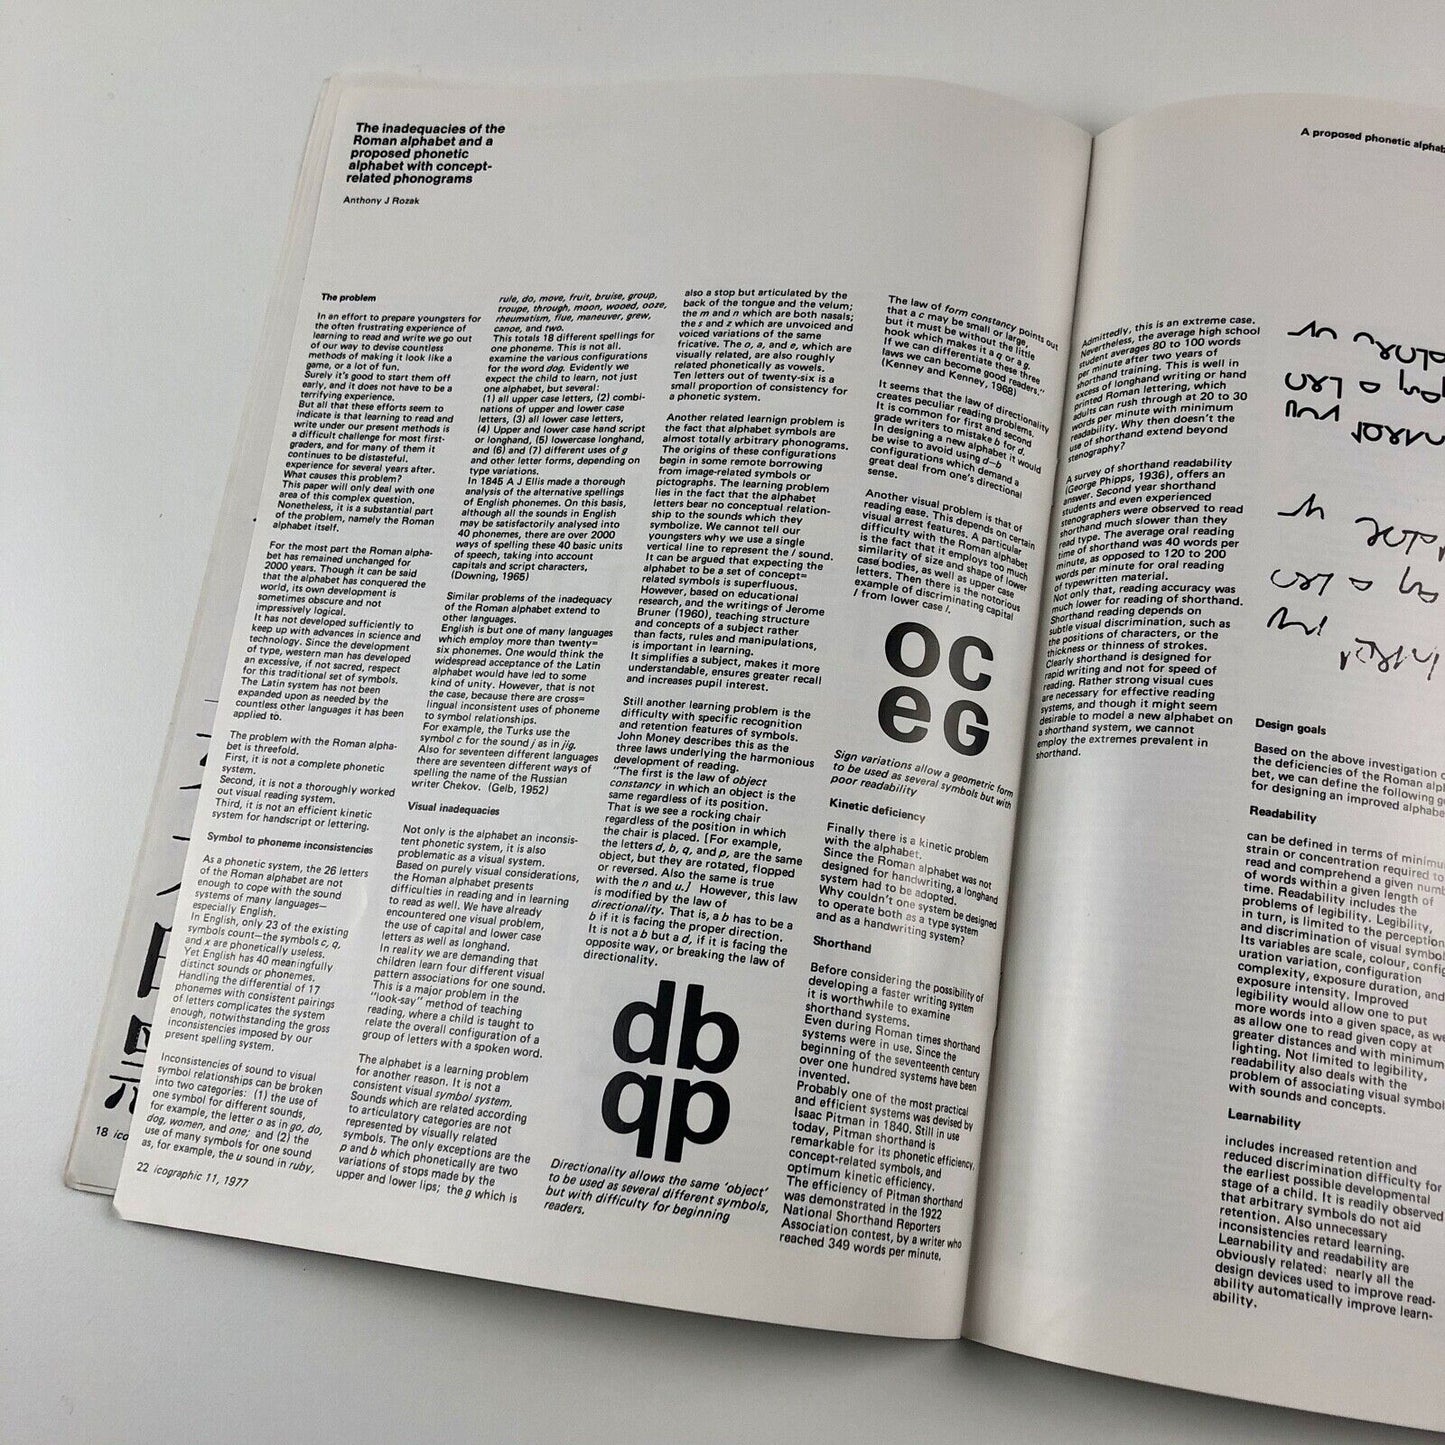 The inadequacies of the
Roman alphabet and a
proposed phonetic
alphabet with concept-
related phonograms
Anthony J Rozak
The problem
In an effort to prepare youngsters for
the often frustrating experience of
learning to read and write we go out
of our way to devise countless
methods of making it look like a
game, or a lot of fun.
Surely it's good to start them off
early, and it does not have to be a
terrifying experience.
But all that these efforts seem to
indicate is that learning to read and
write under our present methods is
a difficult challenge for most first-
graders, and for many of them it
continues to be distasteful.
experience for several years after.
What causes this problem?
This paper will only deal with one
area of this complex question.
Nonetheless, it is a substantial part
of the problem, namely the Roman
alphabet itself.
For the most part the Roman alpha-
bet has remained unchanged for
2000 years. Though it can be said
that the alphabet has conquered the
world, its own development is
sometimes obscure and not
impressively logical.
It has not developed sufficiently to
keep up with advances in science and
technology. Since the development
of type, western man has developed
an excessive, if not sacred, respect
for this traditional set of symbols.
The Latin system has not been
expanded upon as needed by the
countless other languages it has been
applied to.
The problem with the Roman alpha-
bet is threefold.
First, it is not a complete phonetic
system.
Second, it is not a thoroughly worked
out visual reading system.
Third, it is not an efficient kinetic
system for handscript or lettering.
Symbol to phoneme inconsistencies
As a phonetic system, the 26 letters
of the Roman alphabet are not
enough to cope with the sound
systems of many languages—
especially English.
In English, only 23 of the existing
symbols count—the symbols c, q,
and x are phonetically useless.
Yet English has 40 meaningfully
distinct sounds or phonemes.
Handling the differential of 17
phonemes with consistent pairings
of letters complicates the system
enough, notwithstanding the gross
inconsistencies imposed by our
present spelling system.
Inconsistencies of sound to visual
symbol relationships can be broken
into two categories: (1) the use of
one symbol for different sounds,
for example, the letter o as in go, do,
dog, women, and one; and (2) the
use of many symbols for one sound
as, for example, the u sound in ruby,
22 icographic 11, 1977
rule, do, move, fruit, bruise, group,
troupe, through, moon, wooed, ooze,
rheumatism, flue, maneuver, grew,
canoe, and two.
This totals 18 different spellings for
one phoneme. This is not all.
examine the various configurations
for the word dog. Evidently we
expect the child to learn, not just
one alphabet, but several:
(1) all upper case letters, (2) combi-
nations of upper and lower case
letters, (3) all lower case letters,
(4) Upper and lower case hand script
or longhand, (5) lowercase longhand,
and (6) and (7) different uses of g
and other letter forms, depending on
type variations.
In 1845 A J Ellis made a thorough
analysis of the alternative spellings
of English phonemes. On this basis,
although all the sounds in English
may be satisfactorily analysed into
40 phonemes, there are over 2000
ways of spelling these 40 basic units
of speech, taking into account
capitals and script characters,
(Downing, 1965)
Similar problems of the inadequacy
of the Roman alphabet extend to
other languages.
English is but one of many languages
which employ more than twenty=
six phonemes. One would think the
widespread acceptance of the Latin
alphabet would have led to some
kind of unity. However, that is not
the case, because there are cross=
lingual inconsistent uses of phoneme
to symbol relationships.
For example, the Turks use the
symbol c for the sound j as in jig.
Also for seventeen different languages
there are seventeen different ways of
spelling the name of the Russian
writer Chekov. (Gelb, 1952)
Visual inadequacies
Not only is the alphabet an inconsis-
tent phonetic system, it is also
problematic as a visual system.
Based on purely visual considerations,
the Roman alphabet presents
difficulties in reading and in learning
to read as well. We have already
encountered one visual problem,
the use of capital and lower case
letters as well as longhand.
In reality we are demanding that
children learn four different visual
pattern associations for one sound.
This is a major problem in the
"look-say" method of teaching
reading, where a child is taught to
relate the overall configuration of a
group of letters with a spoken word.
The alphabet is a learning problem
for another reason. It is not a
consistent visual symbol system.
Sounds which are related according
to articulatory categories are not
represented by visually related
symbols. The only exceptions are the
p and b which phonetically are two
variations of stops made by the
upper and lower lips; the g which is
also a stop but articulated by the
back of the tongue and the velum;
the m and n which are both nasals;
the s and z which are unvoiced and
voiced variations of the same
fricative. The o, a, and e, which are
visually related, are also roughly
related phonetically as vowels.
Ten letters out of twenty-six is a
small proportion of consistency for
a phonetic system.
Another related learnign problem is
the fact that alphabet symbols are
almost totally arbitrary phonograms.
The origins of these configurations
begin in some remote borrowing
from image-related symbols or
pictographs. The learning problem
lies in the fact that the alphabet
letters bear no conceptual relation-
ship to the sounds which they
symbolize. We cannot tell our
youngsters why we use a single
vertical line to represent the l sound.
It can be argued that expecting the
alphabet to be a set of concept=
related symbols is superfluous.
However, based on educational
research, and the writings of Jerome
Bruner (1960), teaching structure
and concepts of a subject rather
than facts, rules and manipulations,
is important in learning.
It simplifies a subject, makes it more
understandable, ensures greater recall
and increases pupil interest.
Still another learning problem is the
difficulty with specific recognition
and retention features of symbols.
John Money describes this as the
three laws underlying the harmonious
development of reading.
"The first is the law of object
constancy in which an object is the
same regardless of its position.
That is we see a rocking chair
regardless of the position in which
the chair is placed. [For example,
the letters d, b, q, and p, are the same
object, but they are rotated, flopped
or reversed. Also the same is true
with the n and u.] However, this law
is modified by the law of
directionality. That is, a b has to be a
b if it is facing the proper direction.
It is not a b but a d, if it is facing the
opposite way, or breaking the law of
directionality.
db
qp
Directionality allows the same 'object'
to be used as several different symbols,
but with difficulty for beginning
readers.
The law of form constancy points out
that a c may be small or large,
but it must be without the little
hook which makes it a q or a g.
If we can differentiate these three
laws we can become good readers."
(Kenney and Kenney, 1968)
It seems that the law of directionality
creates peculiar reading problems.
It is common for first and second
grade writers to mistake b for d.
In designing a new alphabet it would
be wise to avoid using d–b
configurations which demand a
great deal from one's directional
sense.
Another visual problem is that of
reading ease. This depends on certain
visual arrest features. A particular
difficulty with the Roman alphabet
is the fact that it employs too much
similarity of size and shape of lower
case bodies, as well as upper case
letters. Then there is the notorious
example of discriminating capital
I from lower case l.
oc
eG
Sign variations allow a geometric form
to be used as several symbols but with
poor readability
Kinetic deficiency
Finally there is a kinetic problem
with the alphabet.
Since the Roman alphabet was not
designed for handwriting, a longhand
system had to be adopted.
Why couldn't one system be designed
to operate both as a type system
and as a handwriting system?
Shorthand
Before considering the possibility of
developing a faster writing system
it is worthwhile to examine
shorthand systems.
Even during Roman times shorthand
systems were in use. Since the
beginning of the seventeenth century
over one hundred systems have been
invented.
Probably one of the most practical
and efficient systems was devised by
Isaac Pitman in 1840. Still in use
today, Pitman shorthand is
remarkable for its phonetic efficiency,
concept-related symbols, and
optimum kinetic efficiency.
The efficiency of Pitman shorthand
was demonstrated in the 1922
National Shorthand Reporters
Association contest, by a writer who
reached 349 words per minute.
18 ico
A proposed phonetic alphab
Admittedly, this is an extreme case.
Nevertheless, the average high school
student averages 80 to 100 words
per minute after two years of
shorthand training. This is well in
excess of longhand writing or hand
printed Roman lettering, which
adults can rush through at 20 to 30
words per minute with minimum
readability. Why then doesn't the
use of shorthand extend beyond
stenography?
A survey of shorthand readability
(George Phipps, 1936), offers an
answer. Second year shorthand
students and even experienced
stenographers were observed to read
shorthand much slower than they
read type. The average oral reading
time of shorthand was 40 words per
minute, as opposed to 120 to 200
words per minute for oral reading
of typewritten material.
Not only that, reading accuracy was
much lower for reading of shorthand.
Shorthand reading depends on
subtle visual discrimination, such as
the positions of characters, or the
thickness or thinness of strokes.
Clearly shorthand is designed for
rapid writing and not for speed of
reading. Rather strong visual cues
are necessary for effective reading
systems, and though it might seem
desirable to model a new alphabet on
a shorthand system, we cannot
employ the extremes prevalent in
shorthand.
Design goals
Based on the above investigation o
the deficiencies of the Roman alph
bet, we can define the following go
for designing an improved alphabe
Readability
can be defined in terms of minimu
strain or concentration required to
read and comprehend a given numb
of words within a given length of
time. Readability includes the
problems of legibility. Legibility,
in turn, is limited to the perception
and discrimination of visual symbo
Its variables are scale, colour, config
uration variation, configuration
complexity, exposure duration, and
exposure intensity. Improved
legibility would allow one to put
more words into a given space, as we
as allow one to read given copy at
greater distances and with minimum
lighting. Not limited to legibility,
readability also deals with the
problem of associating visual symbol
with sounds and concepts.
Learnability
includes increased retention and
reduced discrimination difficulty for
the earliest possible developmental
stage of a child. It is readily observed
that arbitrary symbols do not aid
retention. Also unnecessary
inconsistencies retard learning.
Learnability and readability are
obviously related: nearly all the
design devices used to improve read-
ability automatically improve learn-
ability.